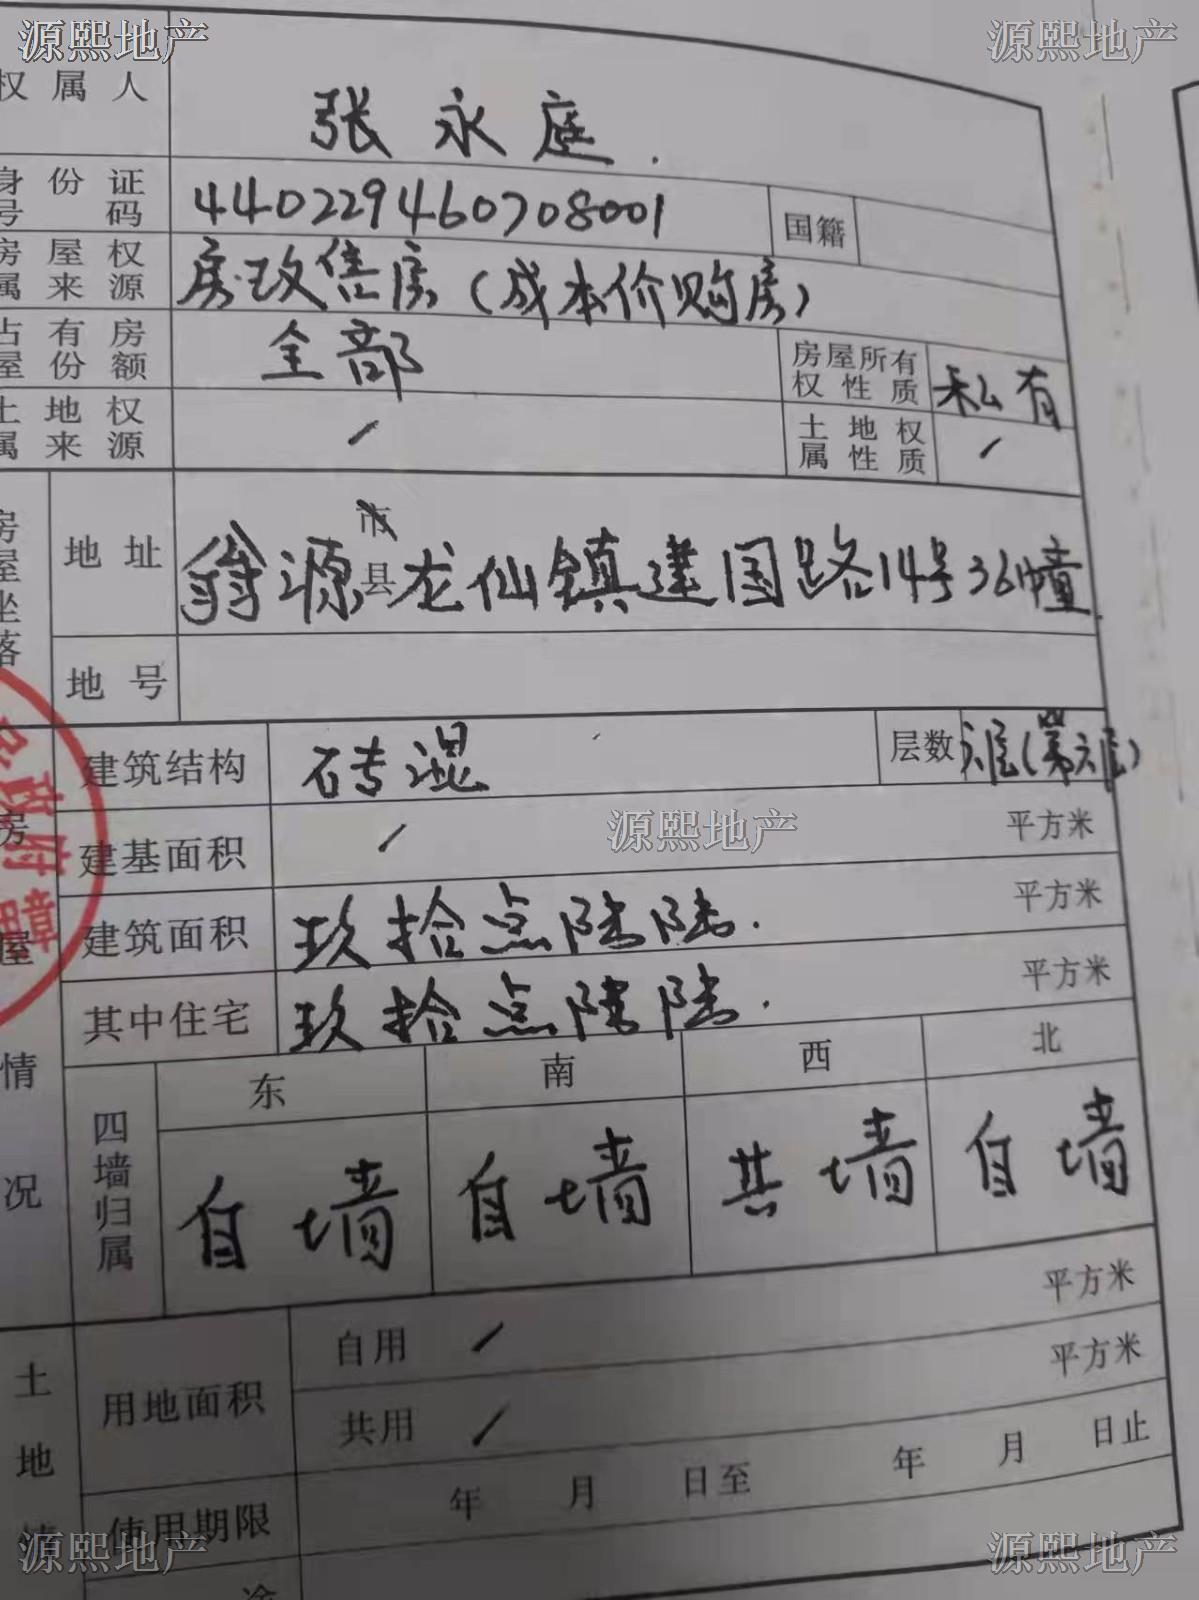 源熙地产 源熙地产
权属人 张永庭.
身份证号码 440229460708001 国籍
房屋权属来源 房改售房(成本价购房)
占有房屋份额 全部 房屋所有权性质 私有
土地权属来源 / 土地权属性质 /
房屋坐落 地址 翁源市县龙仙镇建国路14号36幢.
地号
建筑结构 砖混 层数 六层(第六层)
建基面积 / 平方米
源熙地产
建筑面积 玖拾点陆陆. 平方米
其中住宅 玖拾点陆陆. 平方米
房屋情况
政府
四墙归属 东 南 西 北
自墙 自墙 共墙 自墙
土地情
用地面积 自用 / 平方米
共用 / 平方米
使用期限 年 月 日至 年 月 日止
途
源熙地产 源熙地产